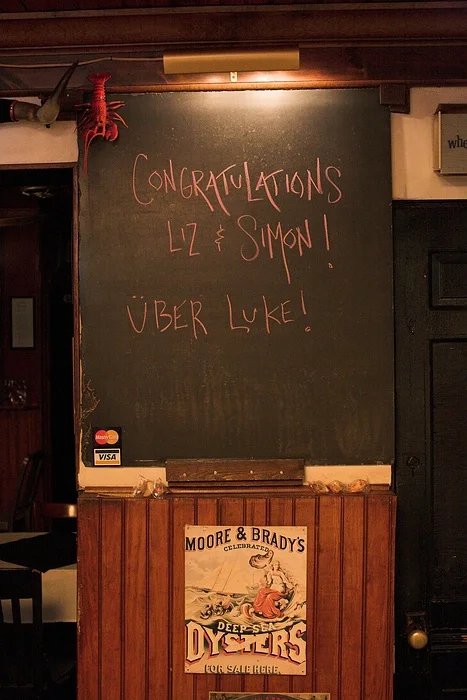 CONGRATULATIONS
LIZ & SIMON!
ÜBER LUKE!
whe
MasterCard
VISA
MOORE & BRADY'S
CELEBRATED
DEEP SEA
OYSTERS
FOR SALE HERE.